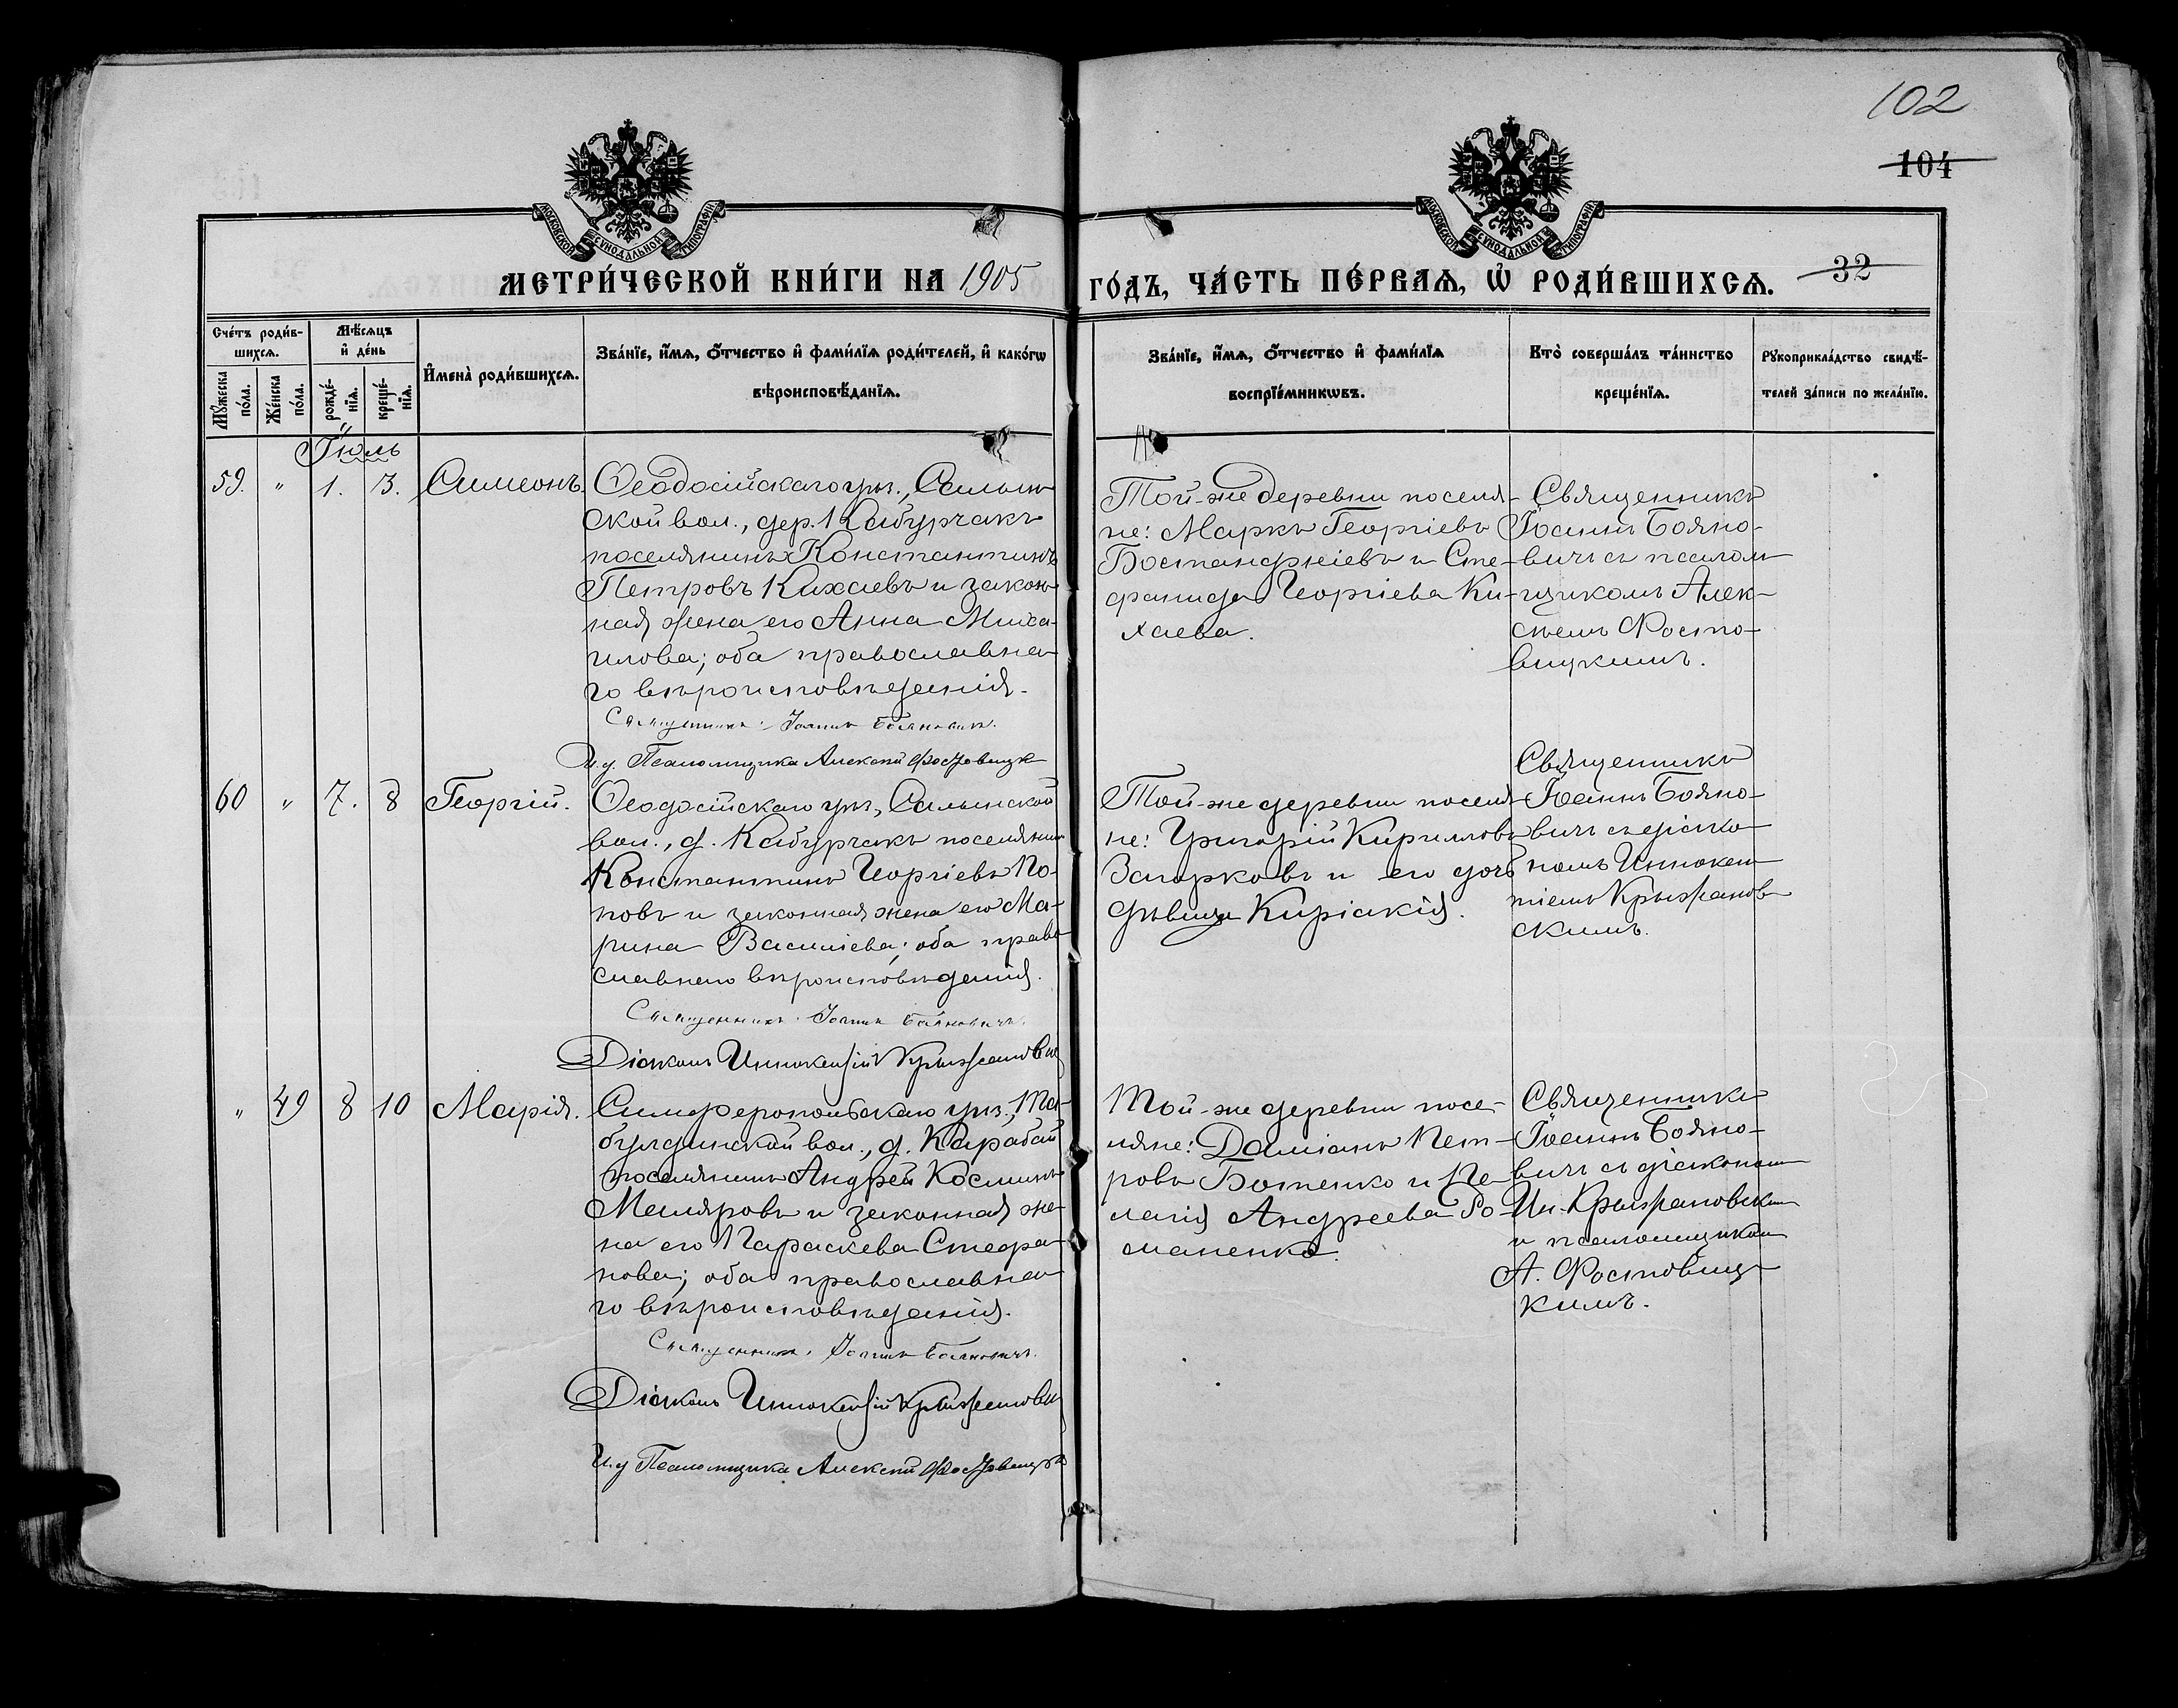 102
104
МОСКОВСКОЙ СѴНОДАЛЬНОЙ ТИПОГРАФІИ
МОСКОВСКОЙ СѴНОДАЛЬНОЙ ТИПОГРАФІИ
МЕТРИ́ЧЕСКОЙ КНИ́ГИ НА 1905
ГО́ДЪ, ЧА́СТЬ ПЕ́РВАѦ, Ѡ҆ РОДИ́ВШИХСѦ. 32
Сче́тъ роди́в-
шихсѧ.
Мꙋ́жеска по́ла.
Же́нска по́ла.
Мѣ́сѧцъ
и҆ де́нь
рожде́-
нїѧ.
креще́-
нїѧ.
И҆мена̀ роди́вшихсѧ.
Зва́нїе, и҆́мѧ, ѻ҆́тчество и҆ фами́лїѧ роди́телей, и҆ како́гѡ
вѣроисповѣ́данїѧ.
Зва́нїе, и҆́мѧ, ѻ҆́тчество и҆ фами́лїѧ
воспрїе́мникѡвъ.
Кто̀ соверша́лъ та́инство
креще́нїѧ.
Рꙋкоприкла́дство свидѣ́-
телей за́писи по жела́нїю.
Іюль
59. " 1. 3. Симеонъ.
Ѳеодосійскаго уѣз., Салын-
ской вол., дер. Кабурчакъ
поселянинъ Константинъ
Петровъ Кихаевъ и закон-
ная жена его Анна Миха-
илова; оба православна-
го вѣроисповѣданія.
Священникъ Іоаннъ Бояновичъ.
И.д. Псаломщика Алексѣй Фостовицк
Той-же деревни поселя-
не: Маркъ Георгіевъ
Бостанджіевъ и Сте-
фанида Георгіева Ки-
хаева.
Священникъ
Іоаннъ Бояно-
вичъ съ псалом-
щикомъ Алек-
сѣемъ Фосто-
вицкимъ.
60 " 7. 8 Георгій.
Ѳеодосійскаго уѣз., Салынской
вол., д. Кабурчакъ поселянинъ
Константинъ Георгіевъ По-
повъ и законная жена его Ма-
рина Василіева; оба право-
славнаго вѣроисповѣданія.
Священникъ Іоаннъ Бояновичъ.
Діаконъ Иннокентій Крыжановск
Той-же деревни поселя-
не: Григорій Кирилловъ
Загорковъ и его дочь
дѣвица Киріакія.
Священникъ
Іоаннъ Бояно-
вичъ съ діако-
номъ Иннокен-
тіемъ Крыжанов-
скимъ.
" 49 8 10 Марія.
Симферопольскаго уѣз., Та-
булдинской вол., д. Карабай
поселянинъ Андрей Косминъ
Меляровъ и законная же-
на его Параскева Стефа-
нова; оба православна-
го вѣроисповѣданія.
Священникъ Іоаннъ Бояновичъ.
Діаконъ Иннокентій Крыжановск
И.д Псаломщика Алексѣй Фостовицкій
Той-же деревни посе-
ляне: Даміанъ Пет-
ровъ Ботенко и Пе-
лагія Андреева Ро-
маненко.
Священникъ
Іоаннъ Бояно-
вичъ съ діакономъ
Ин. Крыжановским
и псаломщикомъ
А. Фостовиц-
кимъ.